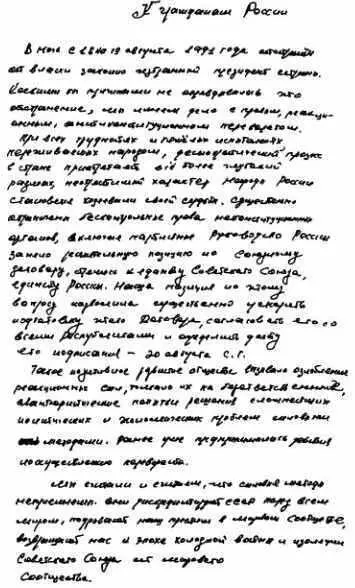 К гражданам России
В ночь с 18 на 19 августа 1991 года отстранён
от власти законно избранный президент страны.
Какими бы причинами не оправдывалось это
отстранение, мы имеем дело с правым, реакци-
онным, антиконституционным переворотом.
При всех трудностях и тяжёлых испытаниях
переживаемых народом, демократический процесс
в стране приобретает всё более глубокий
размах, необратимый характер народы России
становятся хозяевами своей судьбы. Существенно
ограничены бесконтрольные права неконституционных
органов, включая партийные Руководство России
заняло решительную позицию по Союзному
договору, стремясь к единству Советского Союза,
единству России. Наша позиция по этому
вопросу позволила существенно ускорить
подготовку этого Договора, согласовать его со
всеми Республиками и определить дату
его подписания - 20 августа с.г.
Такое развитие событий вызвало озлобление
реакционных сил, толкало их на безответственные,
авантюристические попытки решения сложнейших
политических и экономических проблем силовыми
методами. Ранее уже предпринимались попытки
по осуществлению переворота.
Мы считали и считаем, что силовые методы
неприемлемы. Они дискредитируют СССР перед всем
миром, подрывают наш престиж в мировом сообществе,
возвращают нас к эпохе холодной войны и изоляции
Советского Союза от мирового
Сообщества.